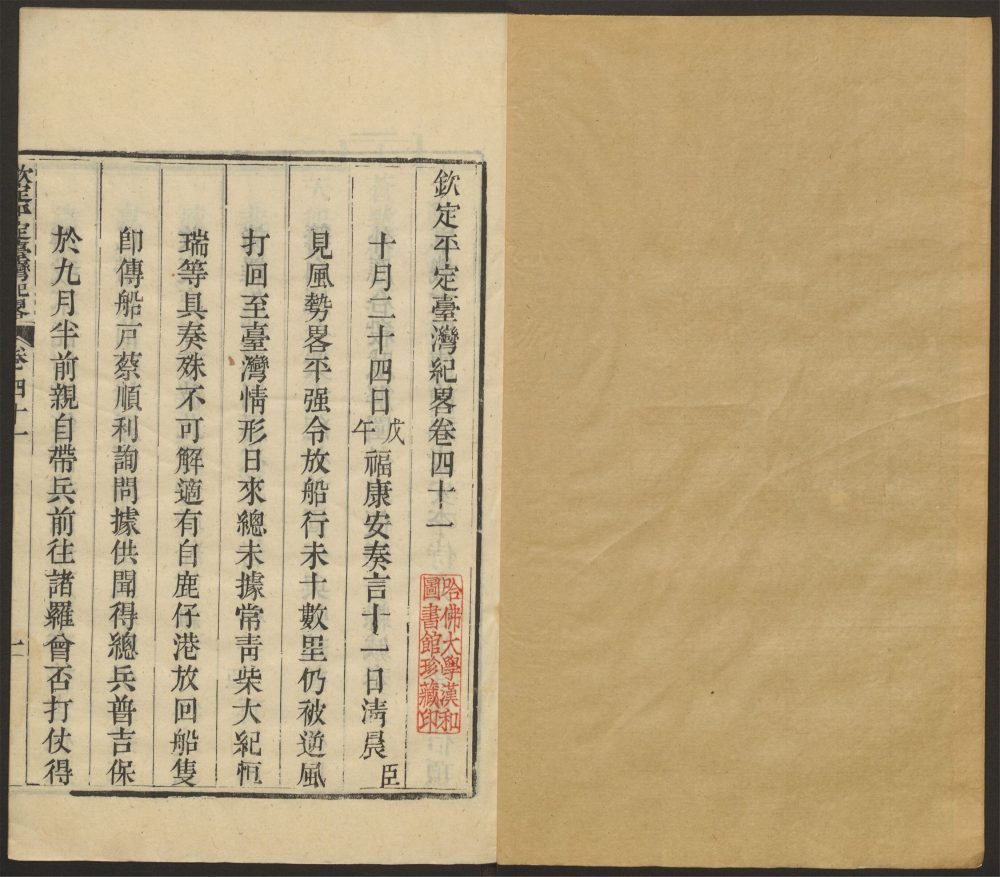 欽定平定臺灣紀畧卷四十一
哈佛大學漢和
圖書館珍藏印
十月二十四日戊午福康安奏言十一日淸晨臣
見風勢畧平强令放船行未十數里仍被逆風
打回至臺灣情形日來總未據常靑柴大紀恒
瑞等具奏殊不可解適有自鹿仔港放回船隻
卽傳船戸蔡順利詢問據供聞得總兵普吉保
於九月半前親自帶兵前往諸羅會否打仗得
欽定平定臺灣紀畧 卷四十一 一